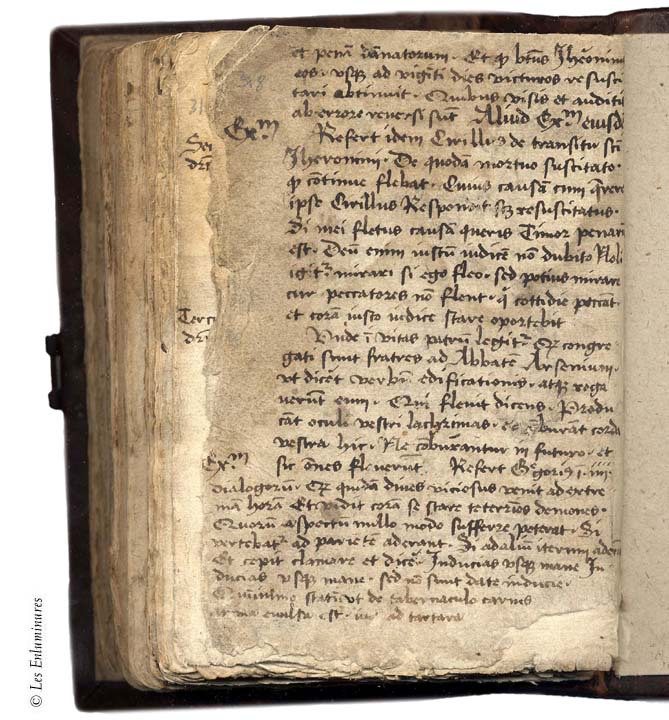 et penā dānatorum · Et qͥ btūs Jherōnim
eos · vsqꝫ ad vigīti dies victuros resusci
tari obtinuit · Quibus visis et auditis
ab errore reuersi sūt Aliud Exᵐ eiusdē
Exᵐ
Refert idem Cirillus de transitu sc̄i
Jheronimi · De quodā mortuo suscitato ·
qͥ cōtinue flebat · Cuius causā cum q̄rere
ipse Cirillus Respondit sꝫ resuscitatus ·
Di mei fletus causā queris Timor penarū
est · Deū enim iustū iudicē nō dubito Noli
igitᷣ mirari si ego fleo · sed potius mirare
cur peccatores nō flent · qͥ cottidie peccāt
et corā iusto iudice stare oportebit
Vnde ī vitas patrū legitᷣ · Qꝫ congre
gati sunt fratres ad Abbatē Arsenium ·
vt dicēt verbū edificationis · atqꝫ roga
uerūt eum · Qui fleuit dicens · Produ
cāt oculi vestri lachrimas · cōburāt corda
vestra hic · Ne cōburantur in futuro · et
sic om̄es fleuerūt Refert Gregori⁹ ī · iiii ·
Exᵐ
dialogorū · Qꝫ quidā diues viciosus venit ad extre
mā horā Et vidit corā se stare teterrios demones ·
Quorū aspectū nullo modo sufferre poterat · Si
vertebatᷣ ad pariete aderant · Si ad aliū iterum aderāt
Et cepit clamare et dicē Inducias vsqꝫ mane In
ducias vsqꝫ mane · sed nō sunt date inducie ·
statī vt de tabernaculo carnis
euulsa est · ad tartara
Sci
dri
Terci
dri
© Les Enluminures